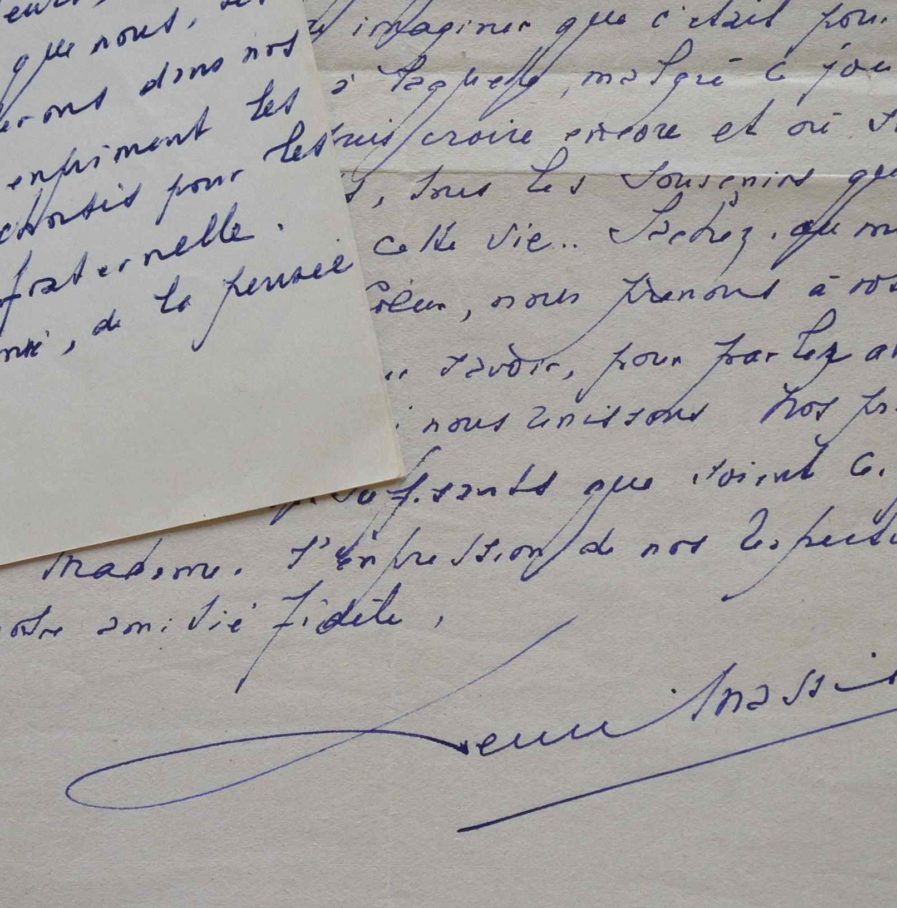 que nous,
dans nos
expriment les
choisis pour les
fraternelle.
, de la pensée
imaginer que c'était pour
à laquelle, malgré ce jou
puis croire encore et où
, tous les souvenirs que
cette vie.. Sachez, que
, nous prenons à vos
savoir, pour parler a
nous unissons Nos pr
que soient ce
Madame. l'expression de nos respectu
notre amitié fidèle,
Henri Massis